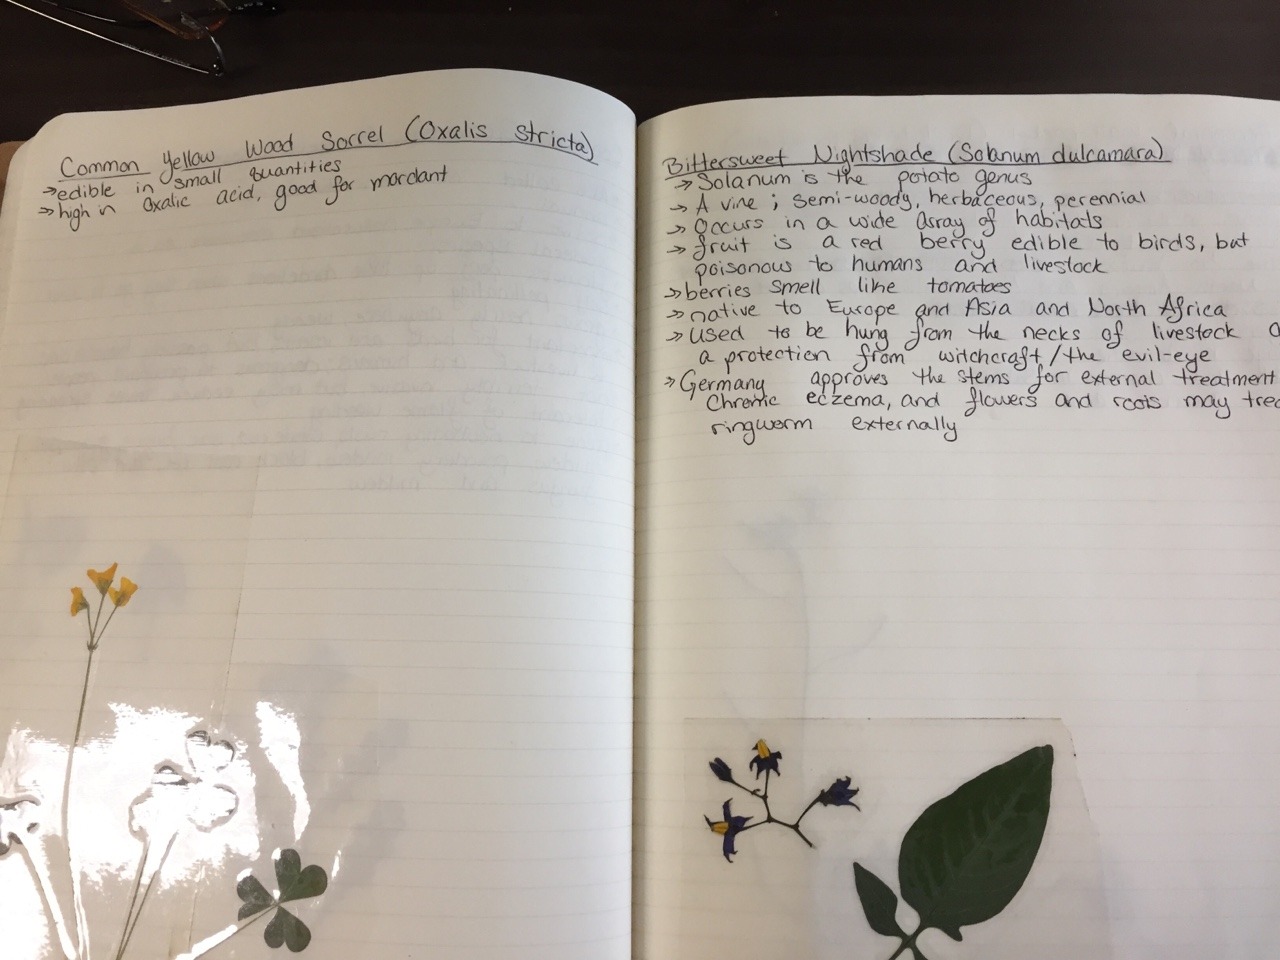 Common Yellow Wood Sorrel (Oxalis stricta)
→edible in small quantities
→high in oxalic acid, good for mordant
Bittersweet Nightshade (Solanum dulcamara)
→ Solanum is the potato genus
→ A vine; semi-woody, herbaceous, perennial
→ Occurs in a wide array of habitats
→ fruit is a red berry edible to birds, but
poisonous to humans and livestock
→berries smell like tomatoes
→native to Europe and Asia and North Africa
→ used to be hung from the necks of livestock
a protection from witchcraft/the evil-eye
→Germany approves the stems for external treatment
Chronic eczema, and flowers and roots may
ringworm externally